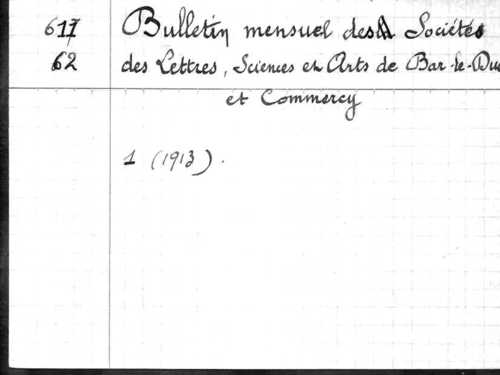 617 Bulletin mensuel des Sociétés
62 des Lettres, Sciences et Arts de Bar-le-Duc
et Commercy
1 (1913).